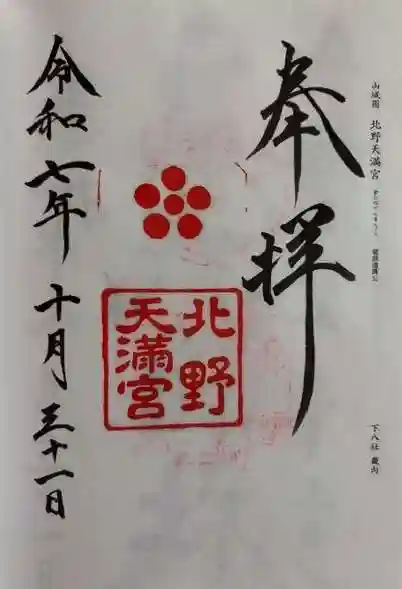 山城國 北野天満宮
下八社 蔵内
奉拝
北野
天満宮
令和七年 十月 三十一日